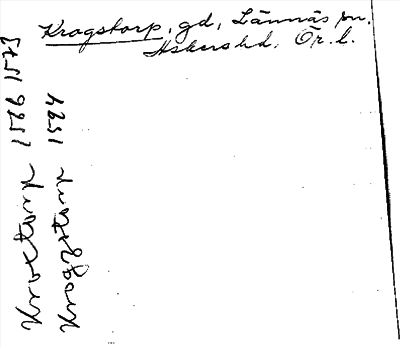 Krogstorp, gd, Lännäs sn.
Askers hd. Ör. l.
Kroctorp 1556 1573
Krogztorp 1574